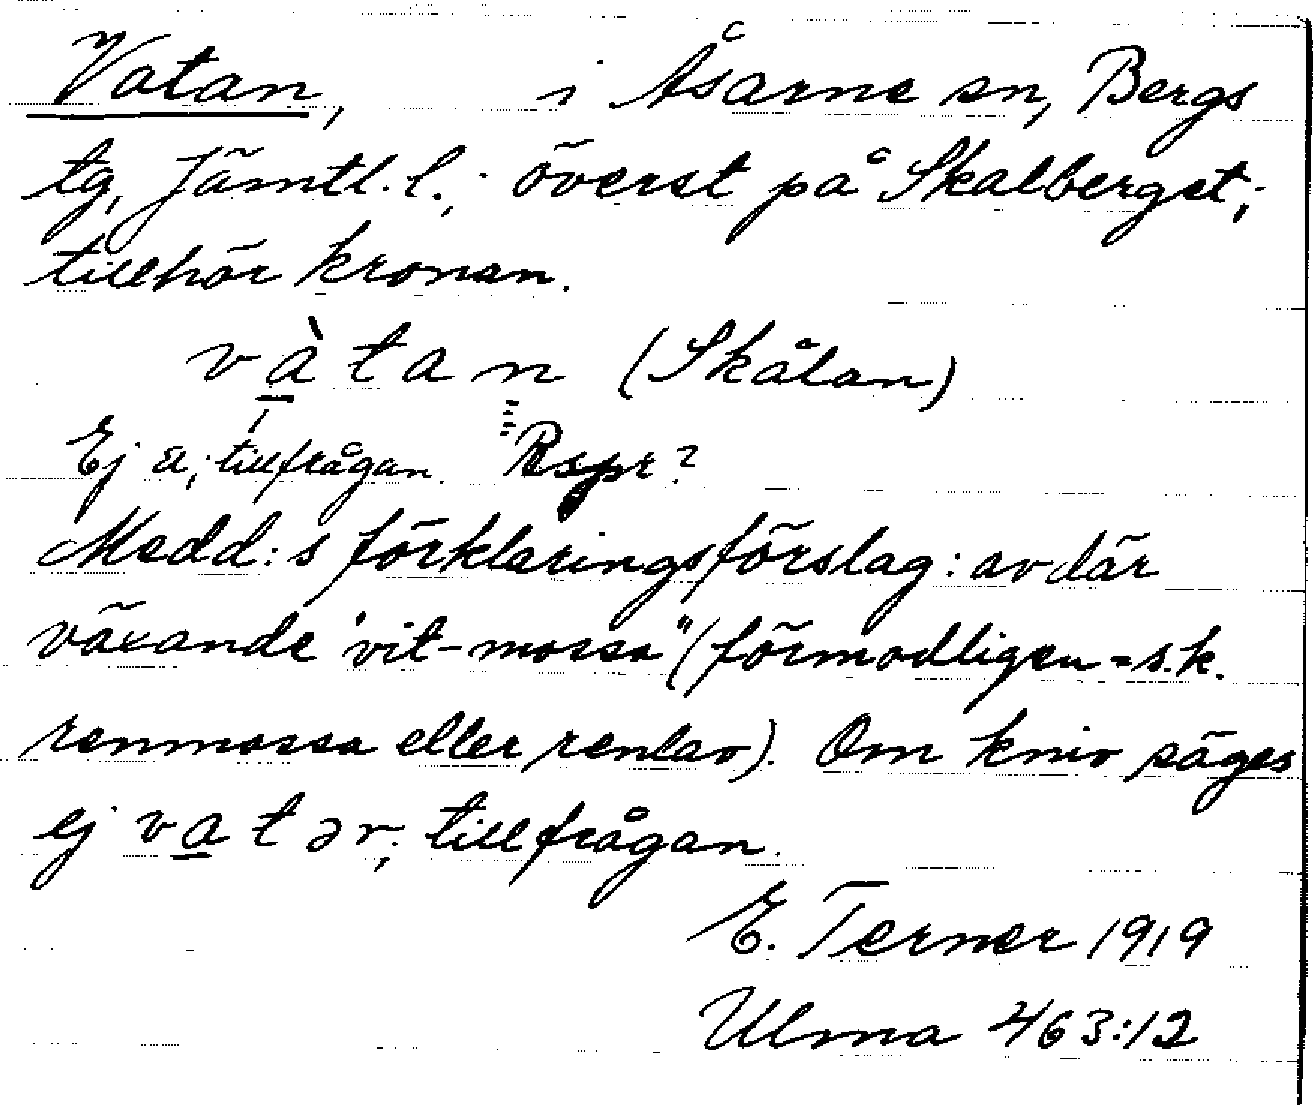 Vatan, i Åsarne sn, Bergs
tg, Jämtl. l.; överst på Skalberget;
tillhör kronan.
vàtan (Skålan)
Ej a; tillfrågan. Rspr?
Medd:s förklaringsförslag: av där
växande "vit-mossa" (förmodligen = s.k.
renmossa eller renlav). Om kniv säges
ej vatər, tillfrågan.
E. Terner 1919
Ulma 463:12